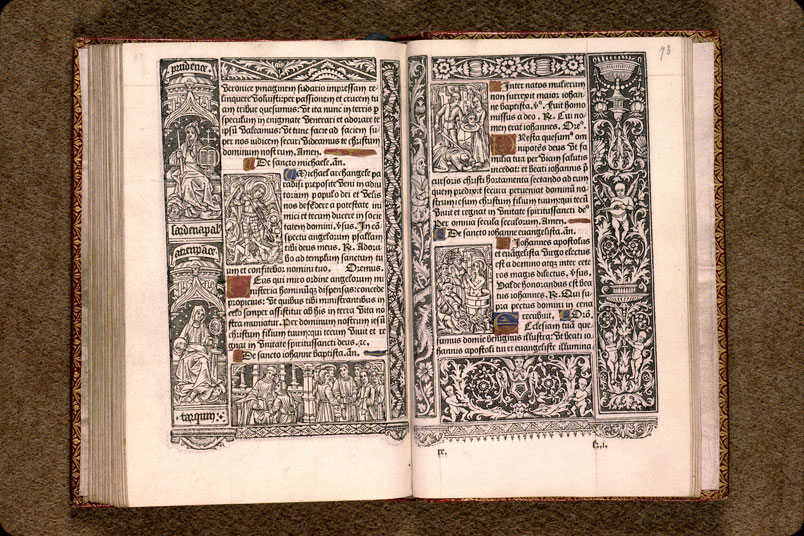 prudence
sardenapal
atrenpace
tarquin
Veronice ymaginem sudario impressam re-
linquere voluisti: per passionem et crucem tu
am tribue quesumus: vt ita nunc in terris per
speculum in enigmate venerari et adorare te
ipsum valeamus: vt tunc facie ad faciem su-
per nos iudicem securi videamus te christum
dominum nostrum. Amen.
De sancto michaele. an.
Michael archangele pa
radisi preposite veni in adiu
torium populo dei et velis
nos defendere a potestate ini
mici et tecum ducere in socie
tatem domini. vsus. In con
spectu angelorum psallam
tibi deus meus. R. Adora
bo ad templum sanctum tu
um et confitebor nomini tuo. Oremus.
Deus qui miro ordine angelorum mi
nisteria hominumque dispensas: concede
propicius: vt quibus tibi ministrantibus in
celo semper assistitur ab his in terra vita no
stra muniatur. Per dominum nostrum iesum
christum filium tuum: qui tecum viuit et re
gnat in vnitate spiritussancti deus. &c.
De sancto iohanne baptista. an.
73
Inter natos mulierum
non surrexit maior iohan
ne baptista. vs. Fuit homo
missus a deo. R. Cui no
men erat iohannes. Ore.
Presta quesumus om
nipotens deus vt fa
milia tua per viam salutis
incedat: et beati iohannis pre
cursoris christi hortamenta sectando ad eum
quem predixit secura perueniat dominum no
strum iesum christum filium tuum: qui tecum
viuit et regnat in vnitate spiritussancti de
Per omnia secula seculorum. Amen.
De sancto iohanne euangelista. an.
Iohannes apostolus
et euangelista virgo electus
est a domino atque inter cete
ros magis dilectus. vsus.
Valde honorandus est bea
tus iohannes. R. Qui su
pra pectus domini in cena
recubuit. Ore.
Eclesiam tuam que
sumus domine benignus illustra: vt beati io
hannis apostoli tui et euangeliste illumina